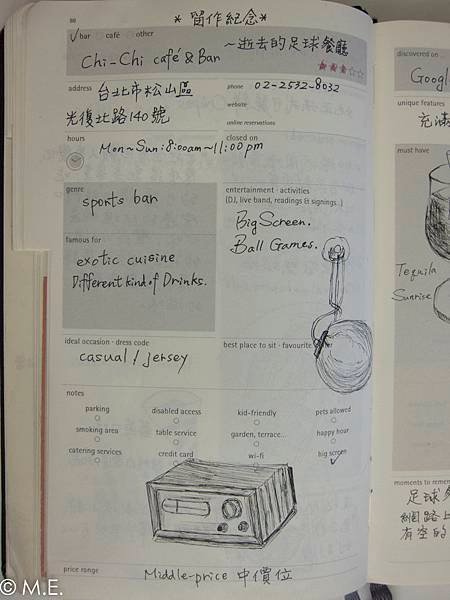 88
*留作紀念*
bar café other
Chi-Chi café & Bar ~逝去的足球餐廳
address 台北市松山區
光復北路140號
phone 02-2532-8032
website
online reservations
hours
Mon~Sun: 8:00am~11:00pm
closed on
genre
sports bar
entertainment · activities
(DJ, live band, readings & signings...)
Big Screen.
Ball Games.
famous for
exotic cuisine
Different kind of Drinks.
ideal occasion · dress code
casual / jersey
best place to sit · favourite
notes
parking
disabled access
kid-friendly
pets allowed
smoking area
table service
garden, terrace...
happy hour
catering services
credit card
wi-fi
big screen
price range
Middle-price 中價位
discovered on ...
Googl
unique features
充滿
must have
Tequila
Sunrise
moments to remem
足球
網路上
有空的
© M.E.